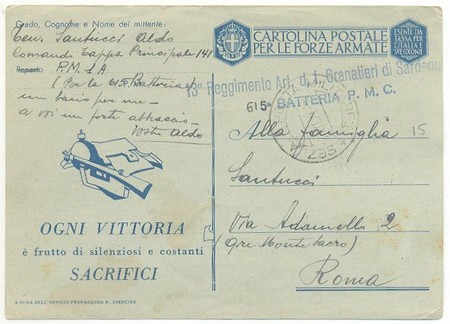 Grado, Cognome e Nome del mittente:
Ten. Santucci Aldo
Comando Tappa Principale 141
Reparto P.M. 1A
(Per la 615 Batteria) un
bacio per me -
a voi un forte abbraccio
Vostro Aldo
OGNI VITTORIA
è frutto di silenziosi e costanti
SACRIFICI
A CURA DELL'UFFICIO PROPAGANDA R. ESERCITO
CARTOLINA POSTALE
PER LE FORZE ARMATE
ESENTE DA
TASSA PER
L'ITALIA E
13° Reggimento Art. d. f. Granatieri di Sardegna
615ª BATTERIA P. M. C.
Alla famiglia
15
Santucci
Via Adamello 2
(gre Monte Sacro)
Roma